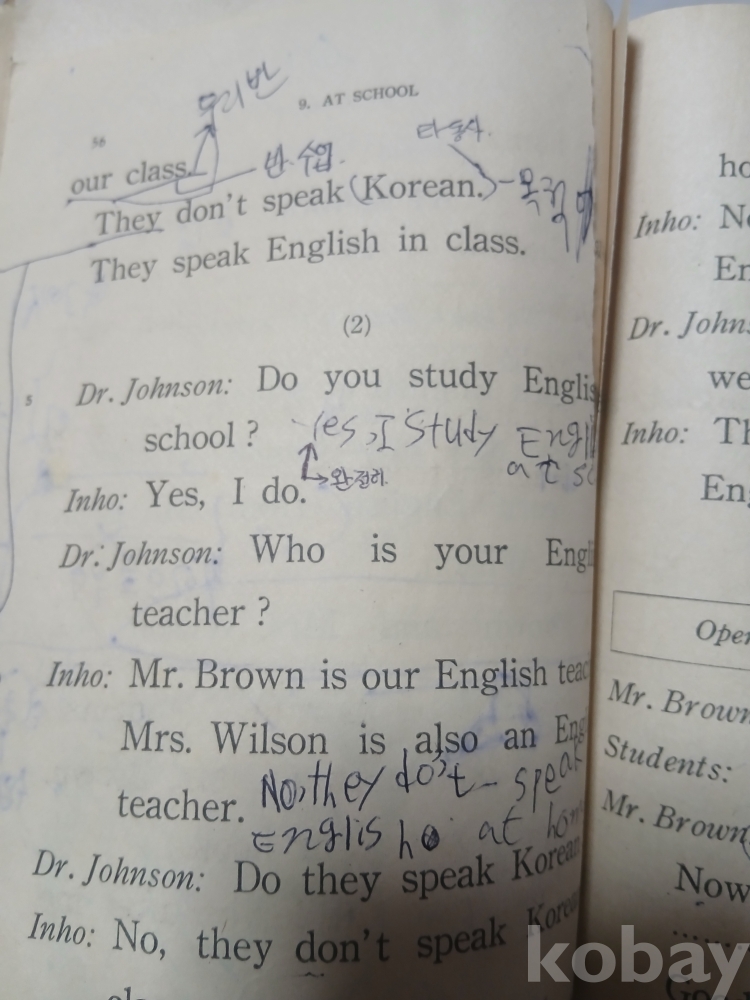 우리반
9. AT SCHOOL
56
타동사.
our class.
반 수업.
They don't speak (Korean.) - 목적어
They speak English in class.
(2)
5
Dr. Johnson: Do you study Englis
school ? Yes, I study Engli
at sc
완전히.
Inho: Yes, I do.
Dr. Johnson: Who is your Engli
teacher ?
Inho: Mr. Brown is our English teac
Mrs. Wilson is also an Eng
teacher. No, they do't - speak
English at hom
Dr. Johnson: Do they speak Korean
Inho: No, they don't speak Korean
ho
Inho: No
En
Dr. Johns
we
Inho: Th
Eng
Oper
Mr. Brown
Students:
Mr. Brown
Now
kobay